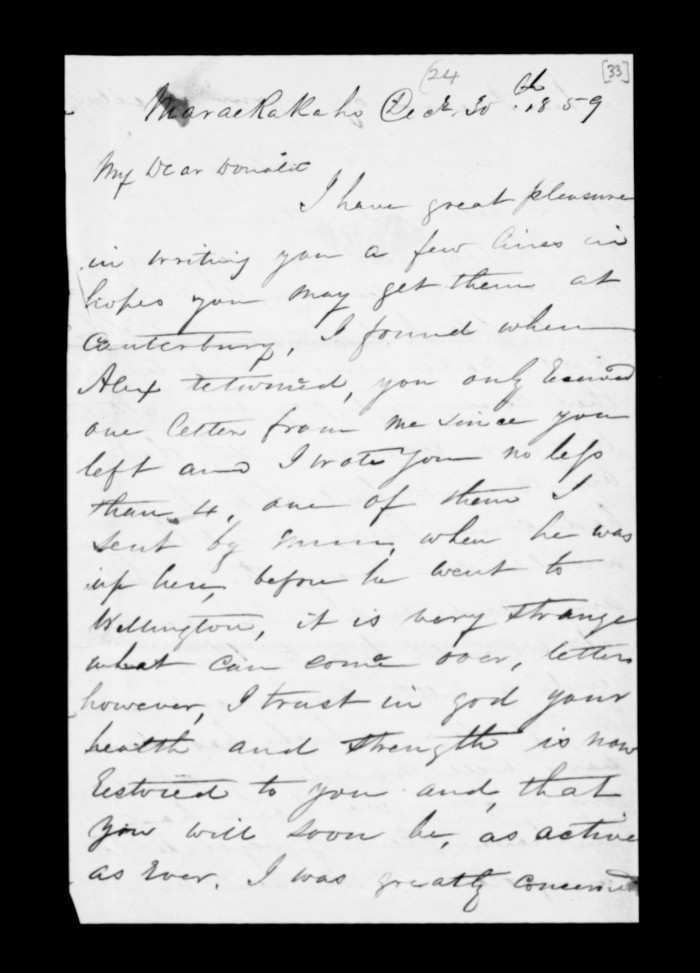 (24
[33]
Maraekakaho Decr. 30th 1859
My Dear Donald
I have great pleasure
in writing you a few lines in
hopes you may get them at
Canterbury, I found when
Alex returned, you only Received
one letter from me since you
left and I wrote you no less
than 4, one of them I
sent by when he was
up here, before he went to
Wellington, it is very strange
what can come over, letters
however, I trust in god your
health and strength is now
Restored to you and, that
you will soon be, as active
as Ever. I was greatly concerned